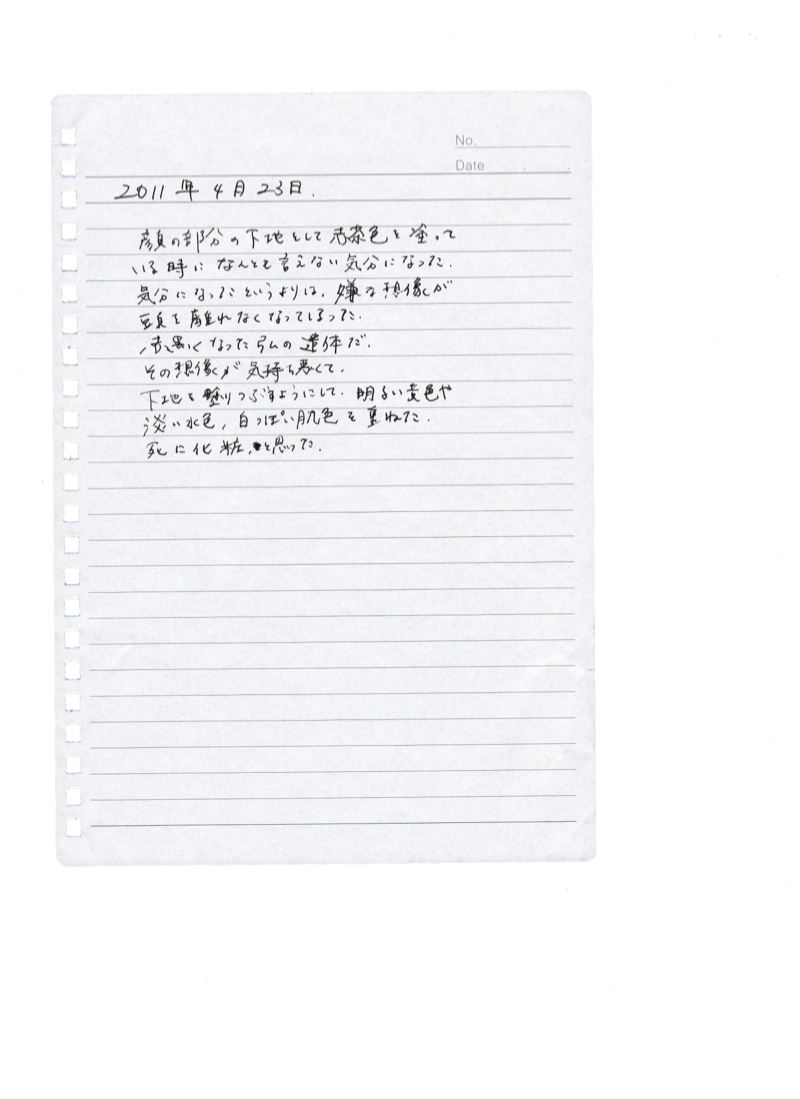 No.
Date
2011年4月23日.
顔の部分の下地として赤茶色を塗って
いる時になんとも言えない気分になった.
気分になったというよりは、嫌な想像が
頭を離れなくなってしまった.
赤黒くなった の遺体だ.
その想像が気持ち悪くて.
下地を塗りつぶすようにして、明るい黄色や
淡い水色, 白っぽい肌色を重ねた.
死に化粧, と思った.